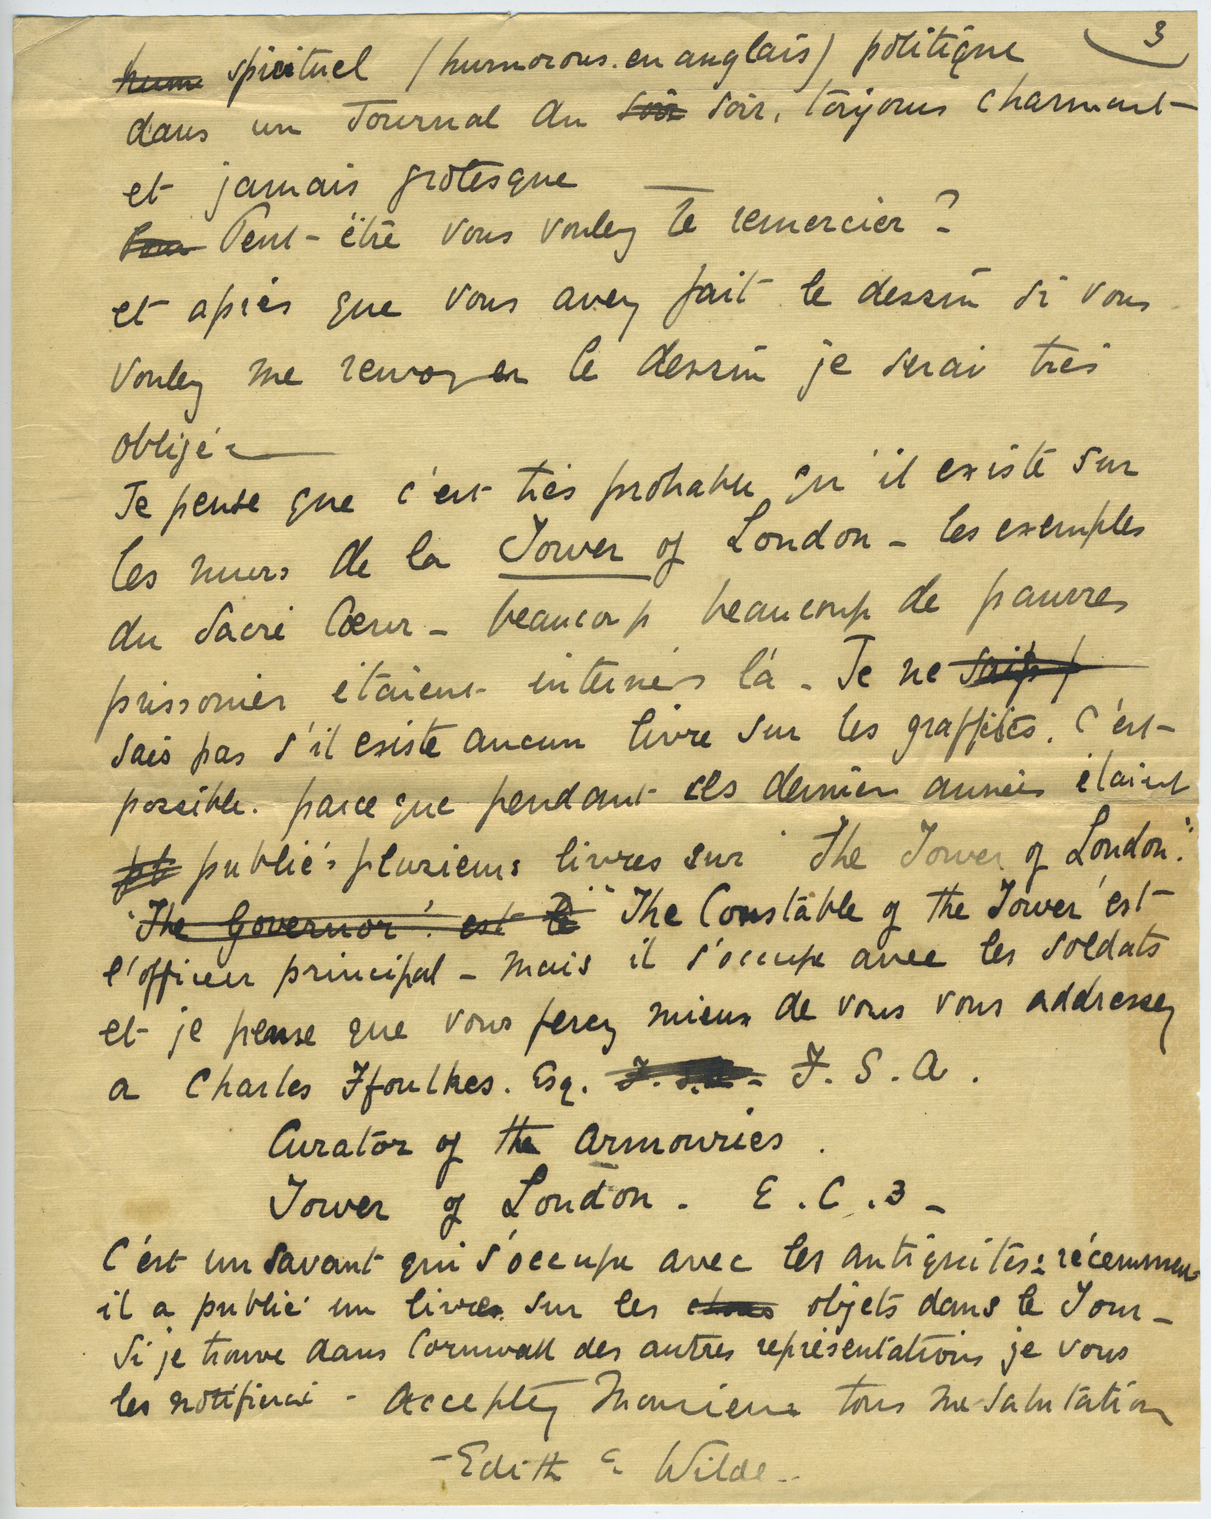 3
hum spirituel (humorous. en anglais) politique
dans un Journal du soir soir, toujours charmant
et jamais grotesque —
Peut-être vous voulez le remercier ?
et après que vous avez fait le dessin si vous
voulez me renvoyer le dessin je serai très
obligée
Je pense que c'est très probable qu'il existe sur
les murs de la Tower of London - les exemples
du Sacré Cœur - beaucoup beaucoup de pauvres
prissonier étaient internés là - Je ne sais p
sais pas s'il existe aucun livre sur les graffites. C'est
possible. parce que pendant ces dernier années étaint
pt publiés plusieurs livres sur "The Tower of London."
"The Governor". est le "The Constable of the Tower est
l'officier principal - mais il s'occupe avec les soldats
et je pense que vous ferez mieux de vous vous addressez
a Charles Ffoulkes. Esq. F.S.A - F. S. A.
Curator of the Armouries.
Tower of London - E. C. 3 -
C'est un savant qui s'occupe avec les antiquités: récemment
il a publié un livre sur les objets dans le Tour -
Si je trouve dans Cornwall des autres représentations je vous
les notifierai - Acceptez Monsieur tous me salutation
- Edith E Wilde -